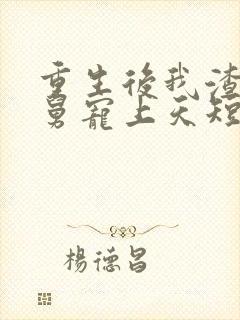 重生後我渣
舅寵上天短
楊德昌